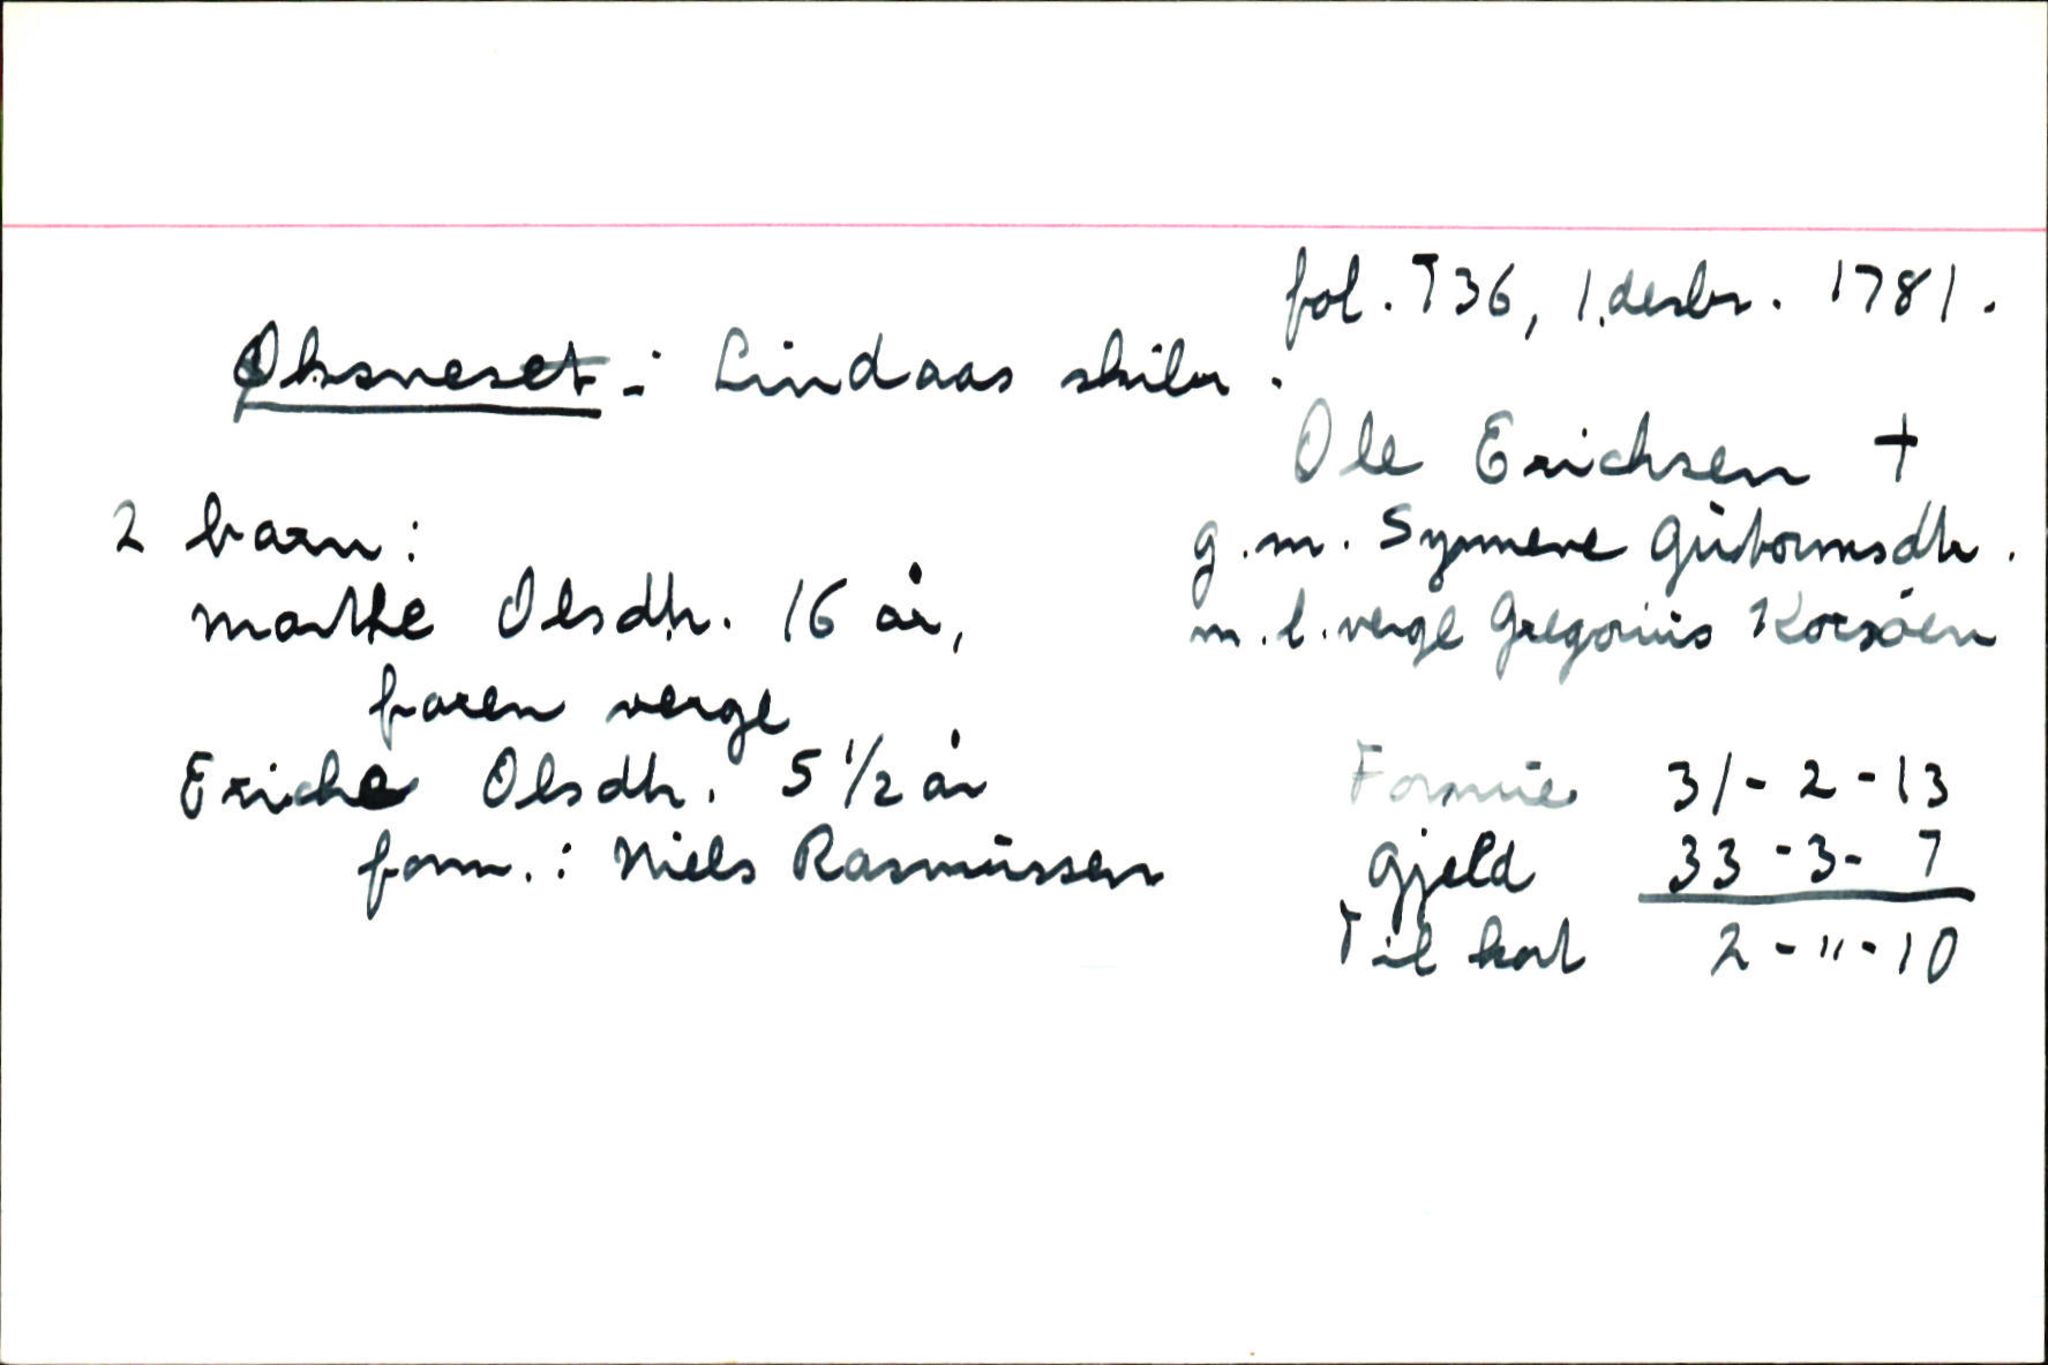 fol. 736, 1. desbr. 1781.
Øksneset: Lindaas skibr.
Ole Erichsen †
g. m. Symene Gutormsdtr.
m. l. verge Gregorius Korsøen
2 barn:
Marthe Olsdtr. 16 år,
faren verge
Eriche Olsdtr. 5 1/2 år
form.: Niels Rasmussen
Formue 31 - 2 - 13
Gjeld 33 - 3 - 7
Til kort 2 - " - 10